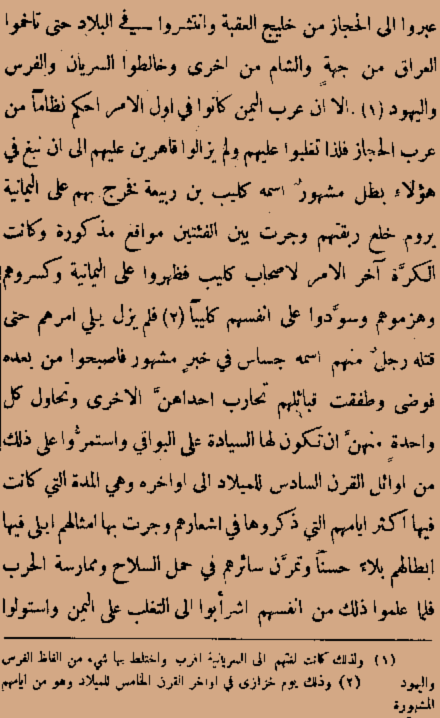 عبروا الى الحجاز من خليج العقبة وانتشروا في البلاد حتى تاخموا
العراق من جهة والشام من اخرى وخالطوا السريان والفرس
واليهود (١) . الا ان عرب اليمن كانوا في اول الامر احكم نظاماً من
عرب الحجاز فلذا تغلبوا عليهم ولم يزالوا قاهرين عليهم الى ان نبغ في
هؤلاء بطل مشهورٌ اسمه كليب بن ربيعة فخرج بهم على اليمانية
يروم خلع ربقتهم وجرت بين الفئتين مواقع مذكورة وكانت
الكرَّة آخر الامر لاصحاب كليب فظهروا على اليمانية وكسروهم
وهزموهم وسوَّدوا على انفسهم كليباً (٢) فلم يزل يلي امرهم حتى
قتله رجلٌ منهم اسمه جساس في خبرٍ مشهور فاصبحوا من بعده
فوضى وطفقت قبائلهم تحارب احداهنَّ الاخرى وتحاول كل
واحدةٍ منهنَّ ان تكون لها السيادة على البواقي واستمرُّوا على ذلك
من اوائل القرن السادس للميلاد الى اواخره وهي المدة التي كانت
فيها اكثر ايامهم التي ذكروها في اشعارهم وجرت بها امثالهم ابلى فيها
ابطالهم بلاءً حسناً وتمرَّن سائرهم في حمل السلاح وممارسة الحرب
فلما علموا ذلك من انفسهم اشرأبوا الى التغلب على اليمن واستولوا
(١) ولذلك كانت لغتهم الى السريانية اقرب واختلط بها شيء من الفاظ الفرس
واليهود (٢) وذلك يوم خزازى في اواخر القرن الخامس للميلاد وهو من ايامهم
المشهورة